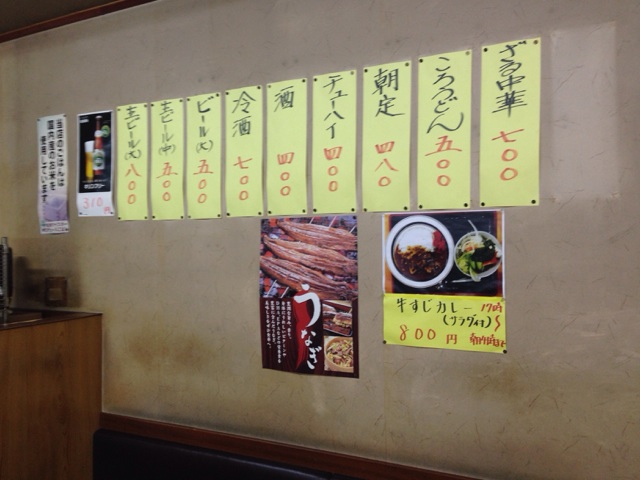 ざる中華 七〇〇
ころうどん 五〇〇
朝定 四八〇
チューハイ 四〇〇
酒 四〇〇
冷酒 七〇〇
ビール(大) 五〇〇
生ビール(中) 五〇〇
生ビール(大) 八〇〇
310円
当店のごはんは
国内産のお米を
使用しています
うなぎ
牛すじカレー 17時
(サラダ付)
800円